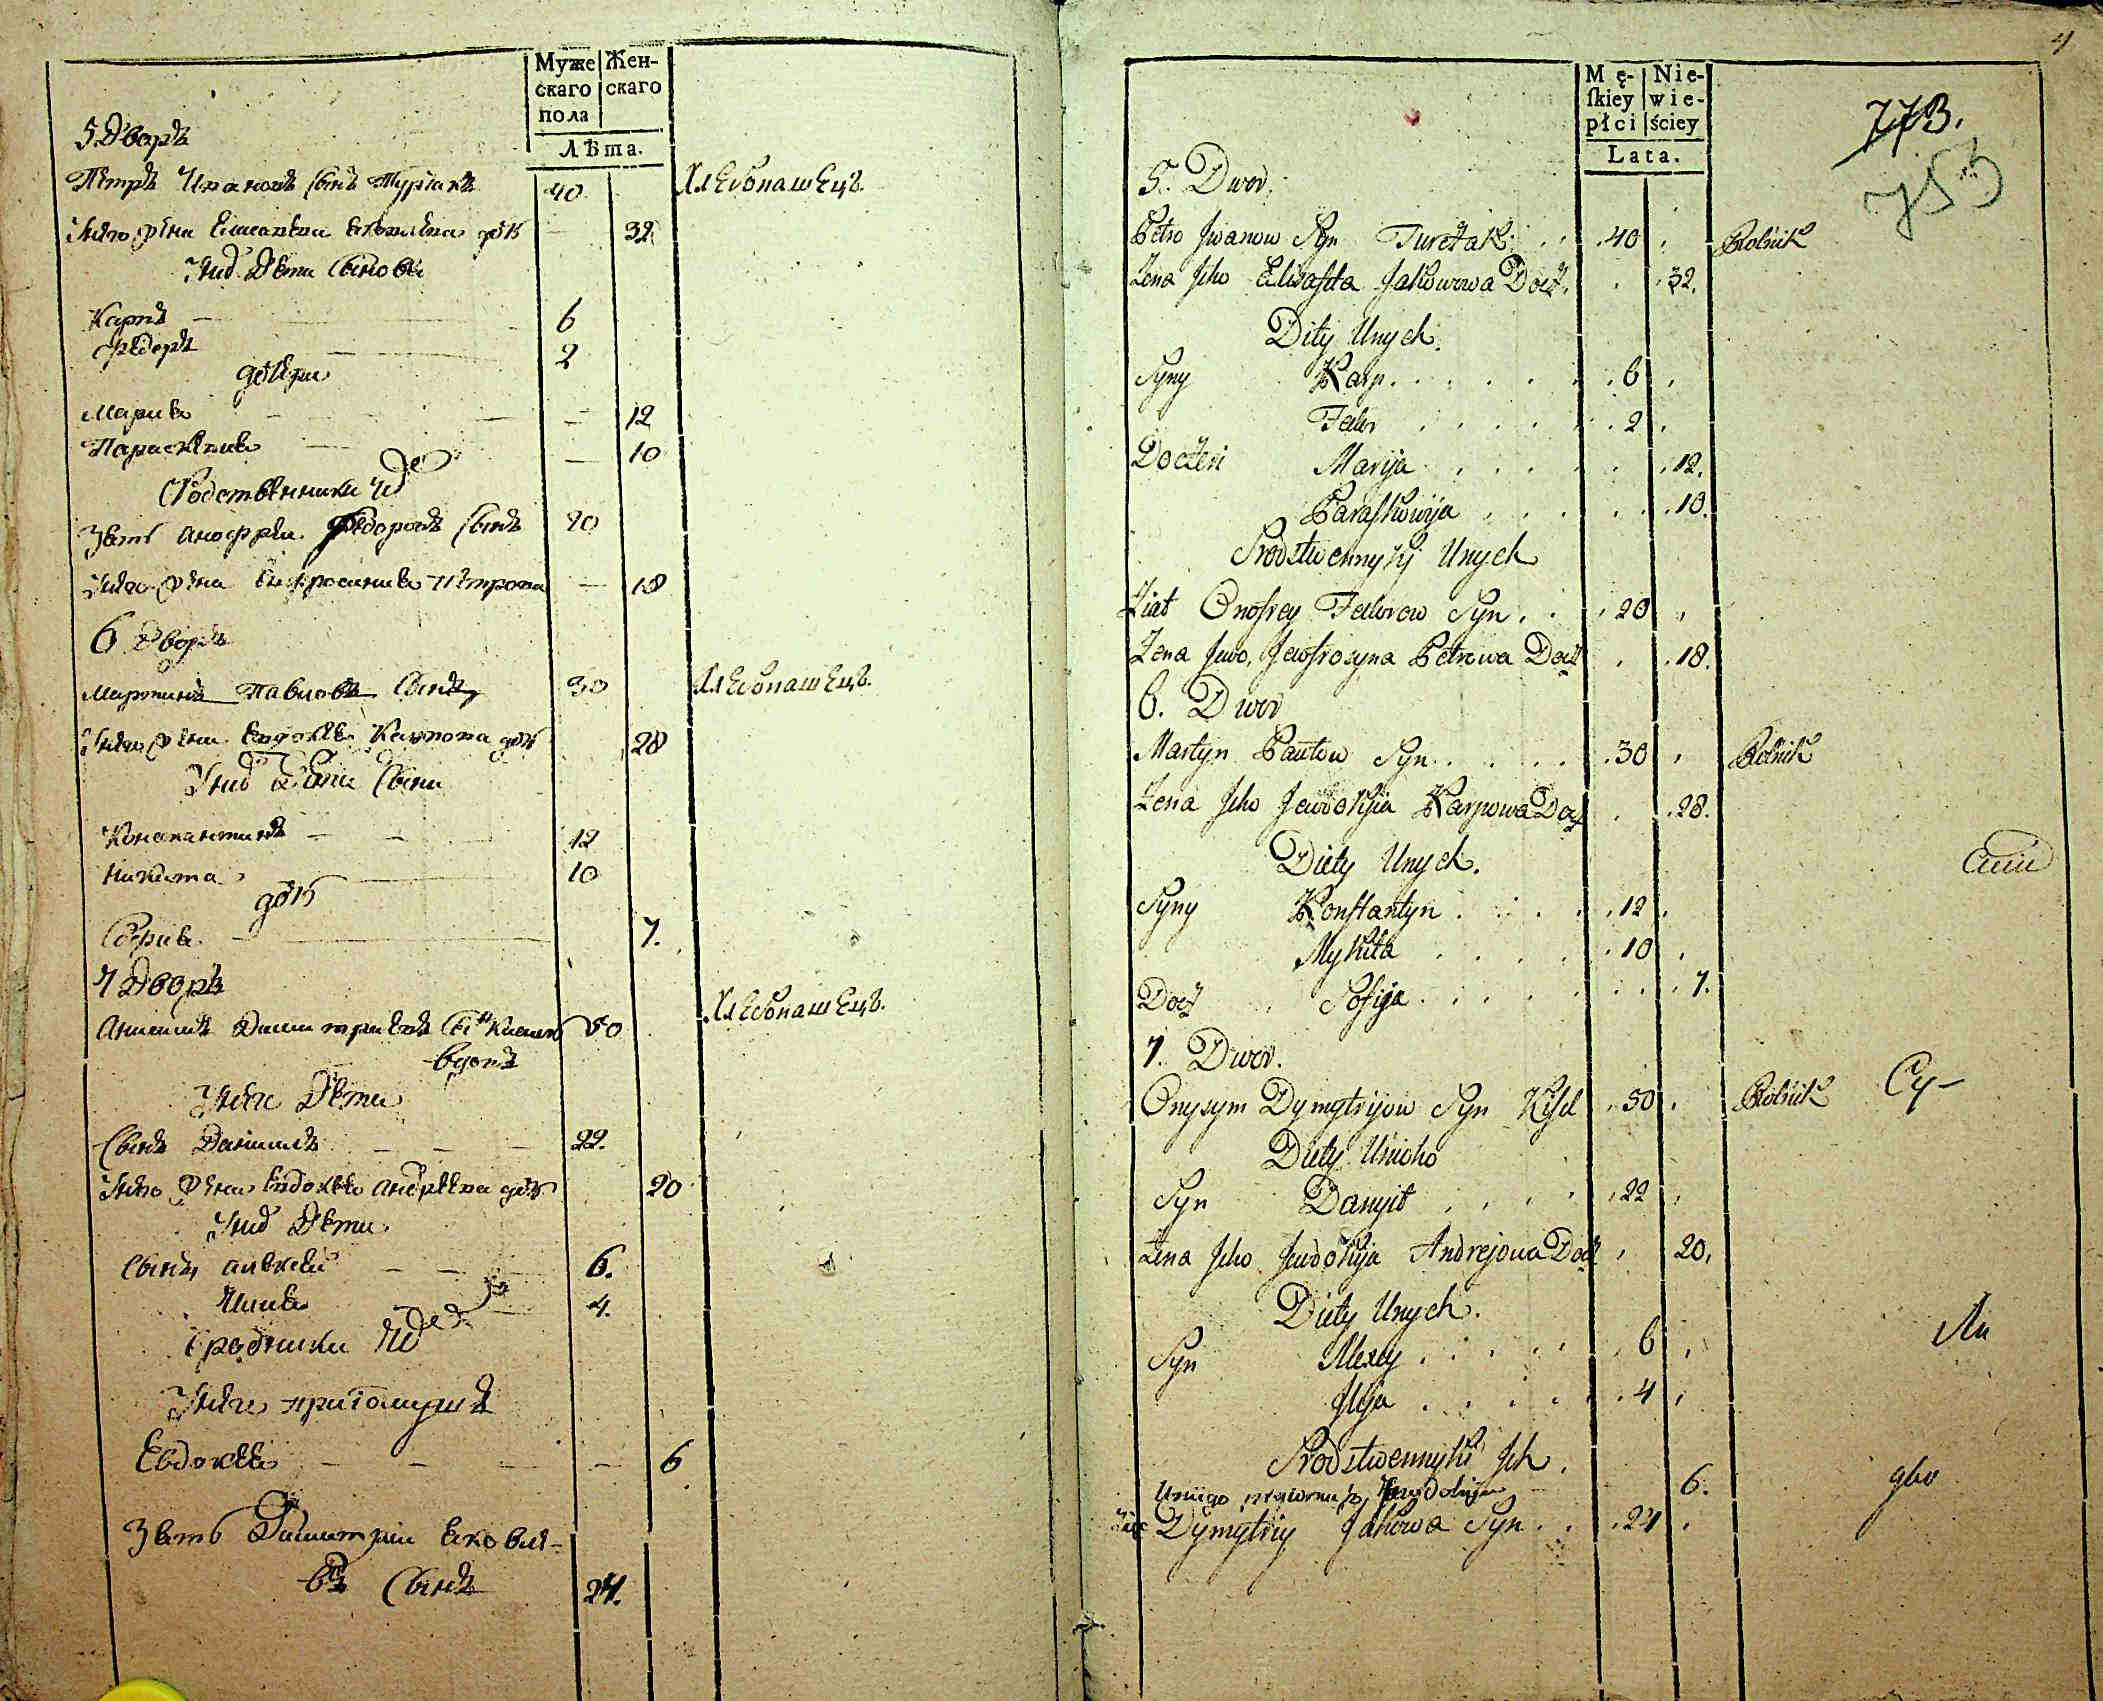 Муже Жен-
скаго скаго
пола
Лѣта.
5 Дворъ
Петръ Ивановъ сынъ Турчакъ 40 Хлебопашецъ
Унего жена Елисавета Яковлева дочь 32
Унихъ дети сыновья
Карпъ 6
Федоръ 2
дочери
Мария 12
Параскевия 10
Сродственники их
Зять Анофрей Федоровъ сынъ 20
Унего жена Евфросиния Петрова 18
6 дворъ
Мартинъ Павловъ сынъ 30 Хлебопашецъ
Унего жена Евдокия Карпова дочь 28
Унихъ дети сыны
Константинъ 12
Никита 10
дочь
София 7.
7 Дворъ
Анисимъ Димитриевъ сынъ Кисель 50 Хлебопашецъ
вдовъ
Унего дети
Сынъ Даниилъ 22.
Унего жена Евдокия Андреева дочь 20
Унихъ дети
Сыны Алексей 6.
Илия 4.
Сродники их
Унего
Евдокия 6
Зять Димитрий Яковле-
въ сынъ 24.
4
Mę- Nie-
ſkiey wie-
płci ściey
Lata.
773.
753
5. Dwor.
Petro Jwanow Syn Turczak 40 Rolnik
Żena Jeho Eliwasſta Jakowowa Docz. 32.
Dity Unych.
Syny Karp 6
Fedor 2
Doczeri Marija 12.
Paraſkowija 10.
Srodstwennyky Unych
Ziat Onofrey Fedorow Syn 20
Żena Jewo, Jewfrosyna Petrowa Docz 18.
6. Dwor
Martyn Pawłow Syn 30 Rolnik
Żena Jeho Jewdokija Karpowa Docz 28.
Diety Unych.
Syny Konſtantyn 12
Mykita 10
Docz Sofija 7.
7. Dwor.
Onysym Dymytrijow Syn Kiſel 50 Rolnik
Diety Unioho
Syn Danyił 22
Żena Jeho Jewdokija Andrejowa Docz 20.
Diety Unych.
Syn Alexey 6
Jlija 4
Srodstwennyki Jch.
Jewdokija 6.
Dymytriy Jakowa Syn 24